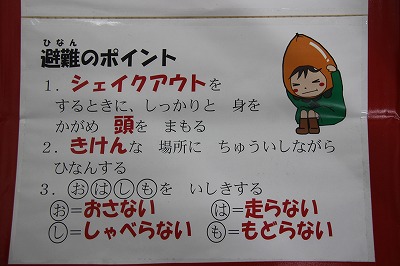 ひなん
避難のポイント
1．シェイクアウトを
するときに、しっかりと 身を
かがめ 頭を まもる
2．きけんな 場所に ちゅういしながら
ひなんする
3．おはしもを いしきする
お=おさない は=走らない
し=しゃべらない も=もどらない